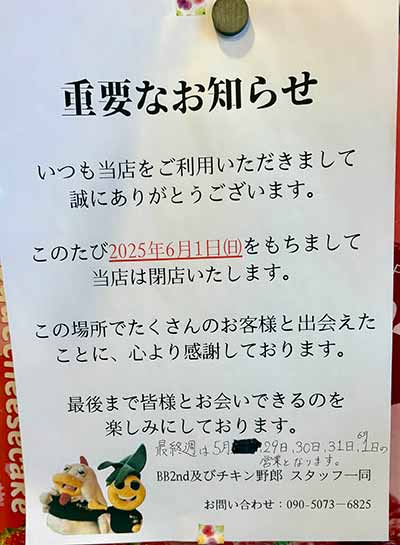 重要なお知らせ
いつも当店をご利用いただきまして
誠にありがとうございます。
このたび2025年6月1日㈰をもちまして
当店は閉店いたします。
この場所でたくさんのお客様と出会えた
ことに、心より感謝しております。
最後まで皆様とお会いできるのを
楽しみにしております。
最終週は5月 29日,30日,31日,6月1日の
営業となります。
BB2nd及びチキン野郎 スタッフ一同
お問い合わせ：090-5073-6825
cheesecake